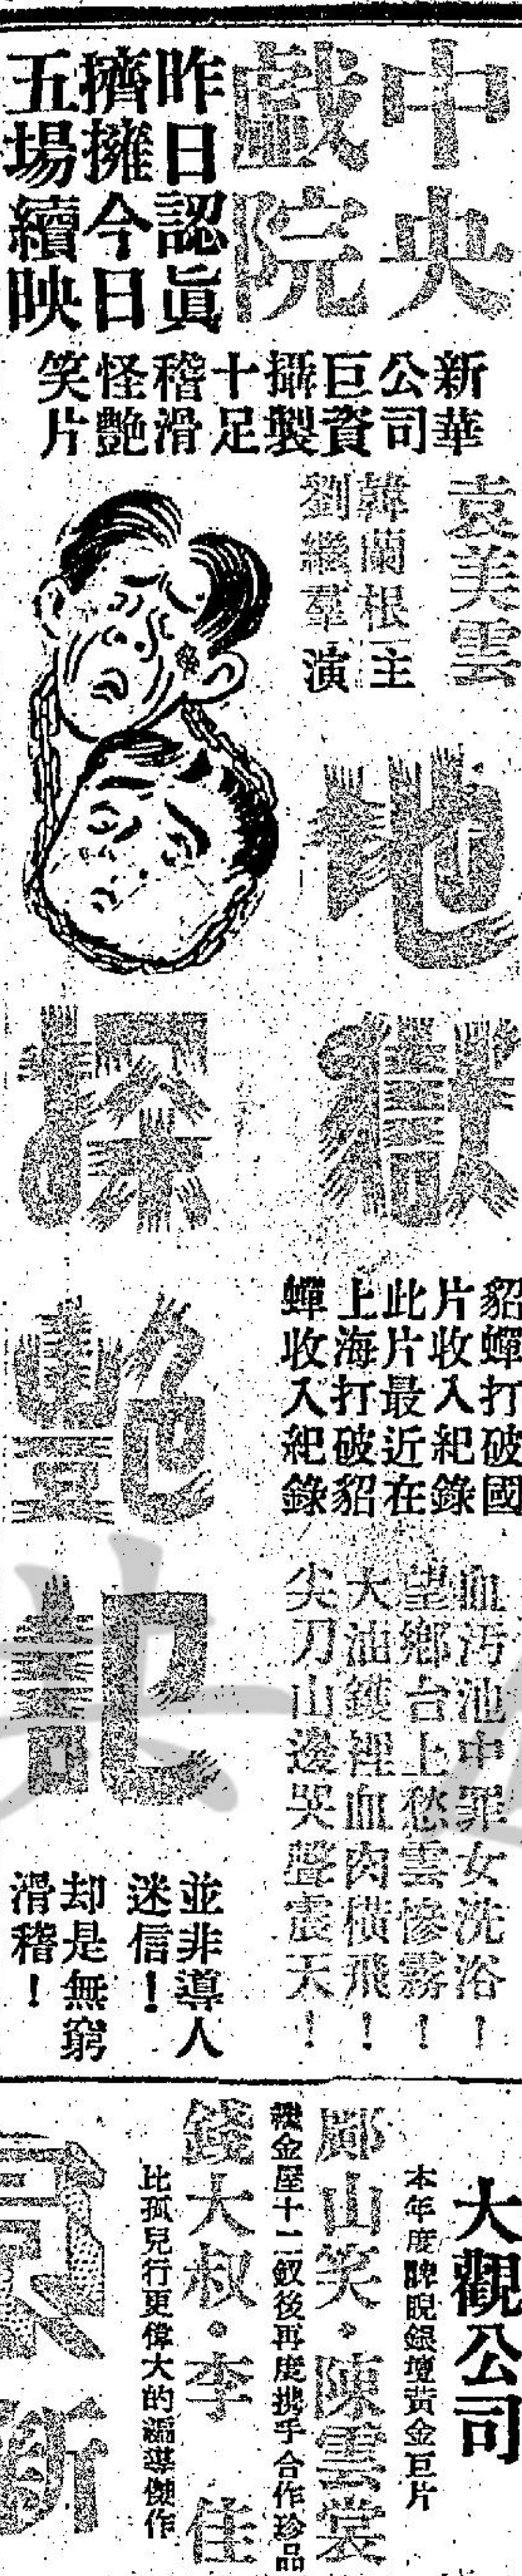 中央
戲院
昨日認眞
擠擁今日
五場續映
新華
公司
巨資
攝製
十足
稽滑
怪艷
笑片
袁美雲
韓蘭根 主
劉繼羣 演
地
獄
探
艷
記
貂蟬打破國
片收入紀錄
此片最近在
上海打破貂
蟬收入紀錄
血污池中罪女洗浴!
望鄉台上愁雲慘霧!
大油鑊裡血肉橫飛!
尖刀山邊哭聲震天!
並非導人
迷信!
却是無窮
滑稽!
大觀公司
本年度睥睨銀壇黃金巨片
鄺山笑·陳雲裳
繼金屋十二釵後再度携手合作珍品
錢大叔·李 佳
比孤兒行更偉大的編導傑作
新